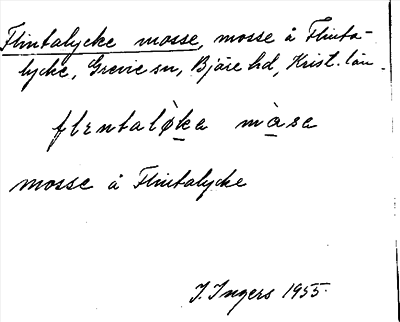 Flintalycke mosse, mosse å Flinta-
lycke, Grevie sn, Bjäre hd, Krist. län.
flɛntalø̀ka mɑ̀sa
mosse å Flintalycke
I. Ingers 1955.